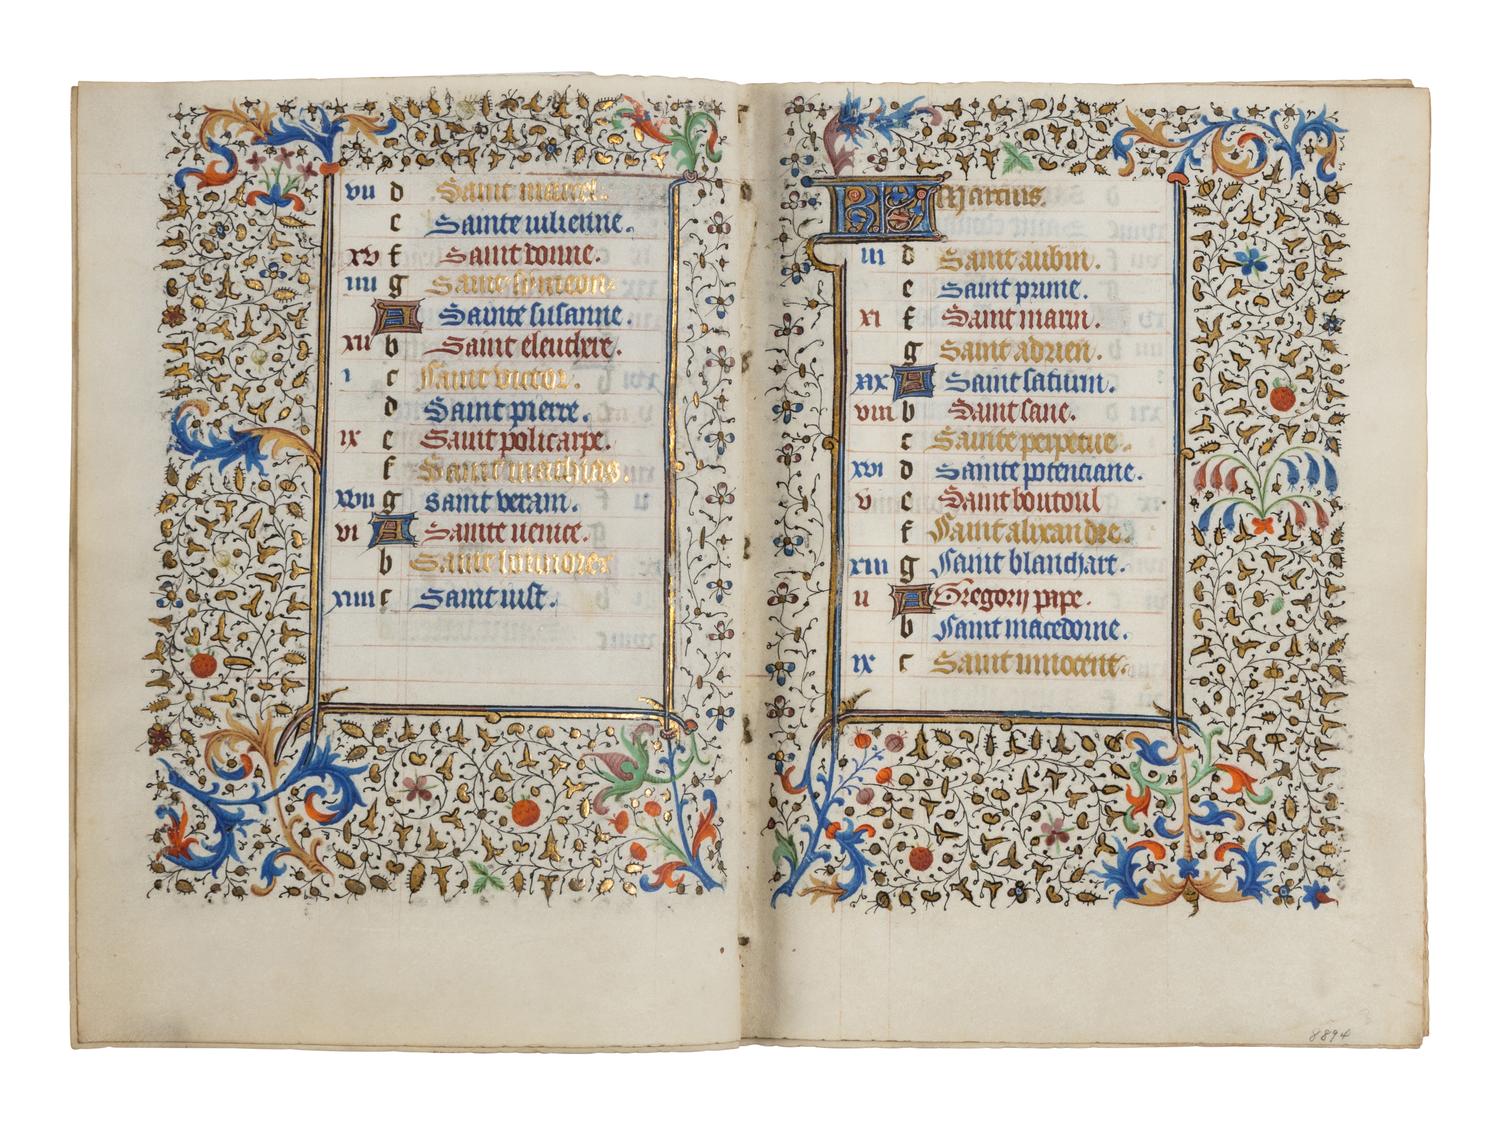 vii d Saint marcel.
e Sainte iulienne.
xv f Saint donne.
iiii g Sainte symeon.
A Sainte susanne.
xii b Saint eleuthere.
i c Saint victor.
d Saint pierre.
ix e Saint policarpe.
f Saint mathias.
xvii g saint veram.
vi A Sainte venice.
b Saint
xiiii c Saint iust.
KL Marcius.
iii d Saint aubin.
e Saint prime.
xi f Saint marin.
g Saint adrien.
xix A Saint satium.
viii b Saint sane.
c Sainte perpetue.
xvi d Sainte potenciane.
v e Saint boutoul
f Saint alixandre.
xiii g Saint blanchart.
ii A Gregorij pape.
b Saint macedome.
ix c Saint innocent.
8894